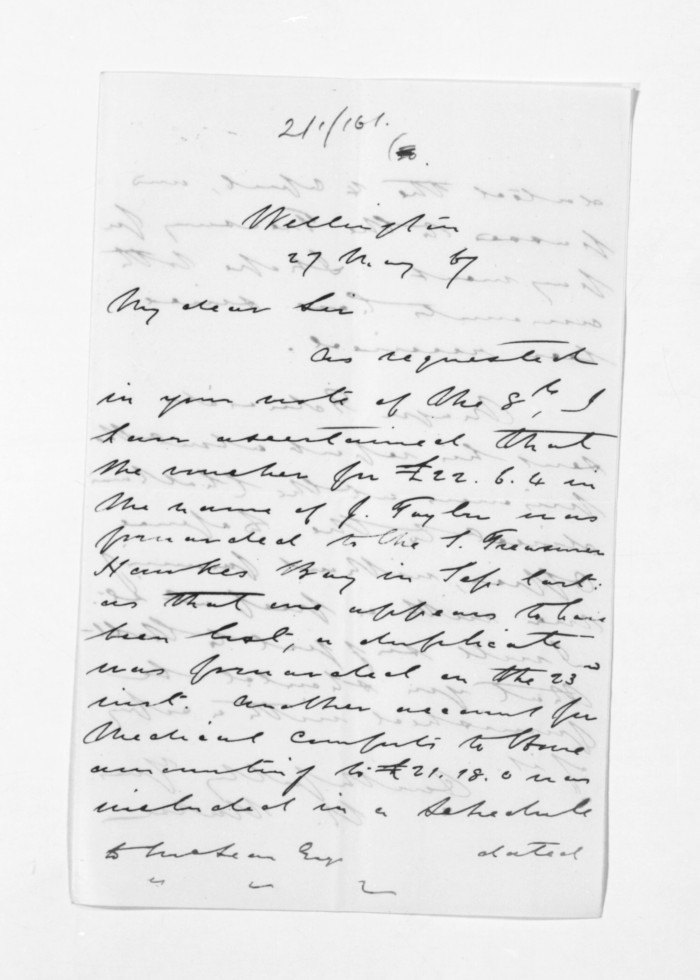 2/1/161.
Wellington
27 May 67
My dear Sir
As requested
in your note of the 8th, I
have ascertained that
the voucher for £22.6.4 in
the name of J. Taylor was
forwarded to the S. Treasurer
Hawkes Bay in Sep. last:
as that one appears to have
been lost, a duplicate
was forwarded on the 23rd
inst. Another account for
Medical Comforts to
amounting to £21.18.0 was
included in a Schedule
McLean Esq dated
" " "